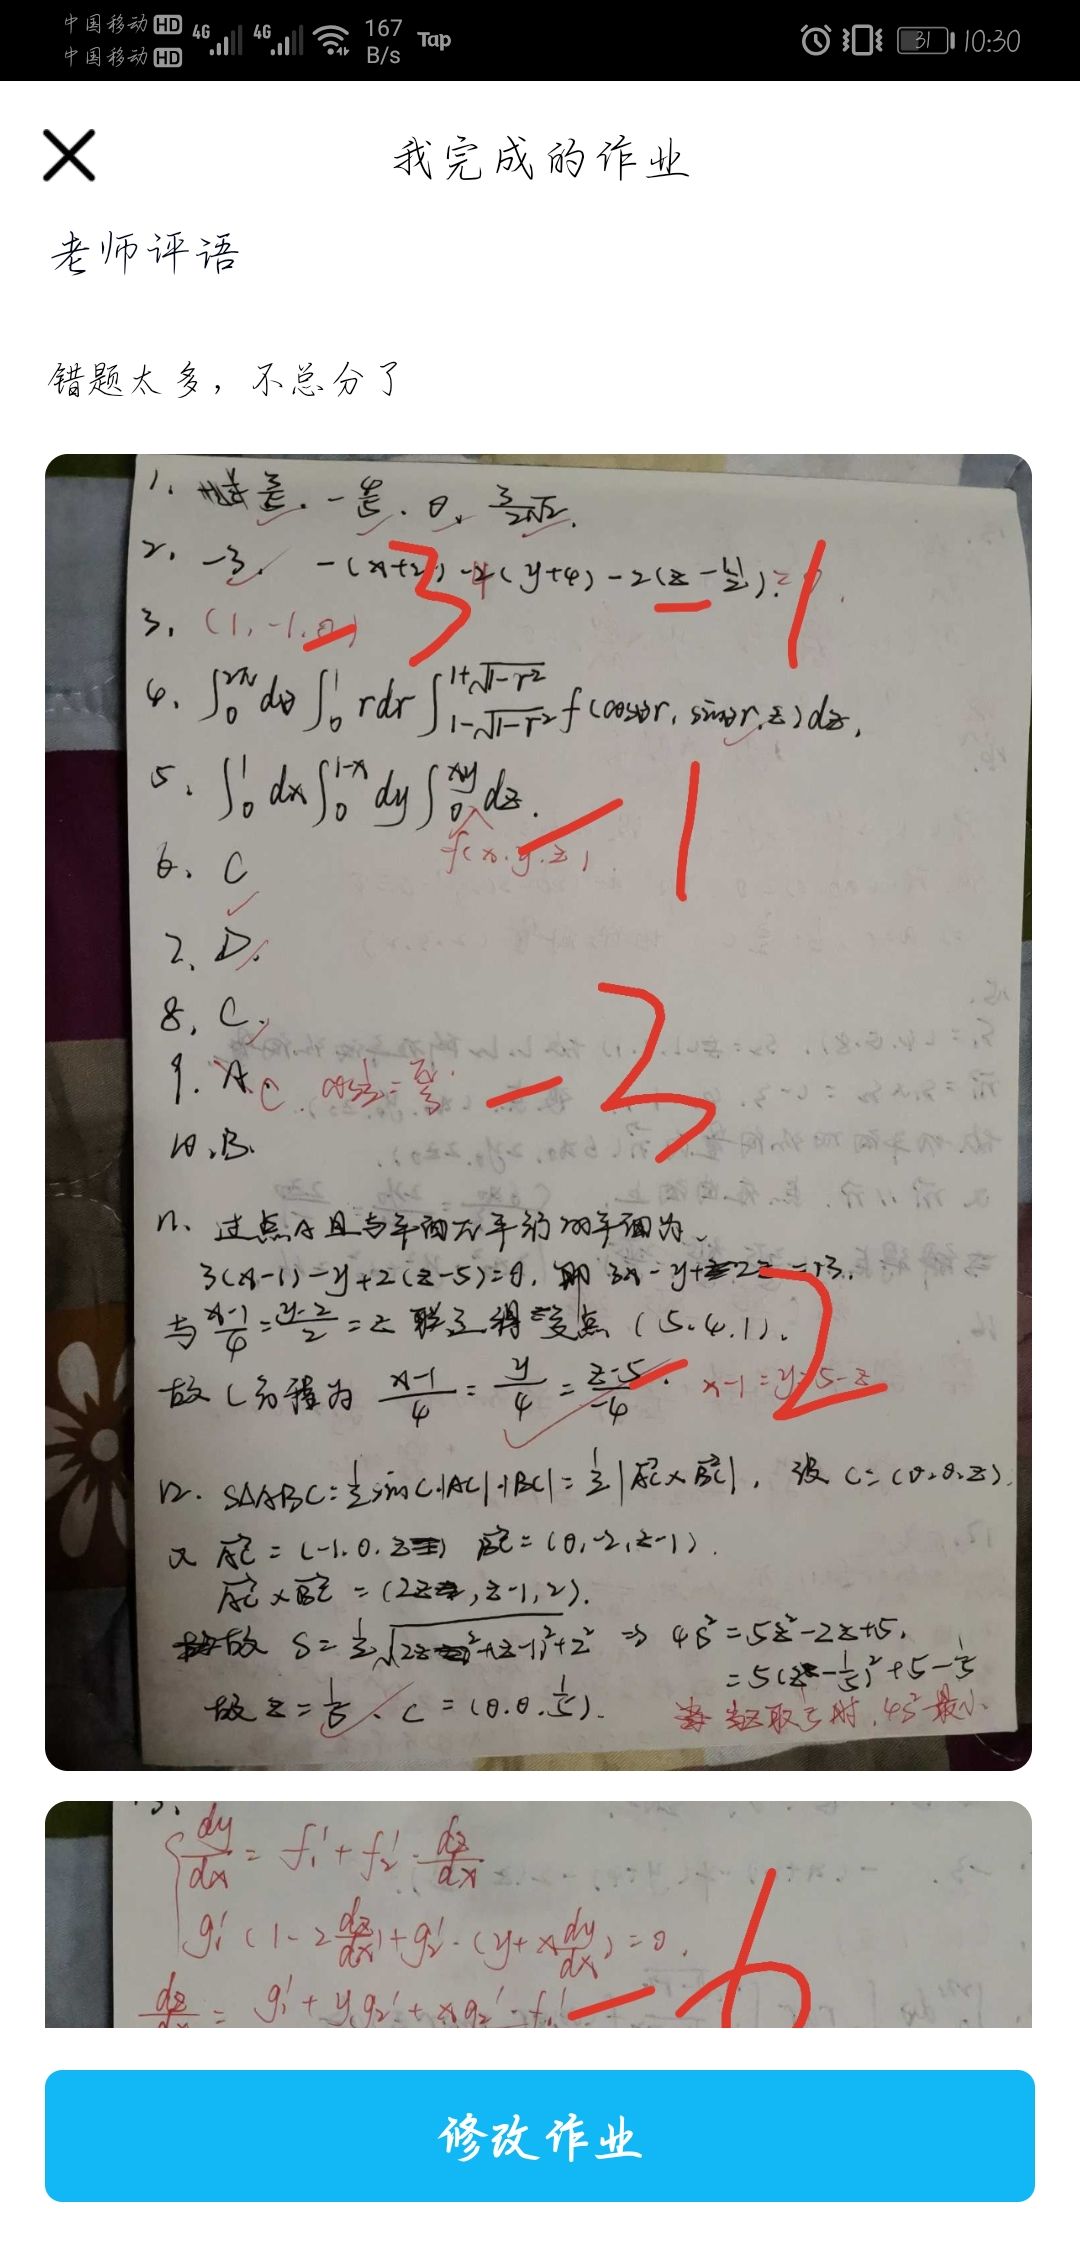 中国移动 HD 4G 4G 167 B/s Tap 31 10:30
中国移动 HD
我完成的作业
老师评语
错题太多，不总分了
1. 3/5. -4/5. 0. 3/2√2.
2. -3. -(x+2) -4(y+4) -2(z-
-3 -1
3. (1,-1,0)
4. ∫₀^2π dθ ∫₀^1 rdr ∫_{1-√1-r²}^{1+√1-r²} f(cosθr, sinθr, z)dz.
5. ∫₀^1 dx ∫₀^{1-x} dy ∫₀^{xy} dz.
f(x.y.z) -1
6. C
7. D.
8. C.
9. A. C. -3
10. B.
11. 过点A且与平面π平行的平面为
3(x-1)-y+2(z-5)=0. 即 3x-y+2z=13.
与 x-1/4=y-2/2=z 联立得交点 (5.4.1).
故L方程为 x-1/4=y/4=z-5/-4. x-1=y=5-z -2
12. S△ABC=1/2 sinC·|AC|·|BC|=1/2|AC×BC|, 设 C=(0.0.z).
又 AC=(-1.0.z) BC=(0,-2,z-1).
AC×BC=(2z,z-1,2).
故 S=1/2√2z²+(z-1)²+2² ⇒ 4S²=5z²-2z+5.
=5(z-1/5)²+5-1/5
故z=1/5. C=(0.0.1/5). 当z取1/5时, 4S²最小.
dy/dx = f₁' + f₂'·dz/dx
g₁'(1-2dz/dx)+g₂'·(y+xdy/dx)=0.
g₁'+yg₂'+xg₂'·f₁' -6
修改作业